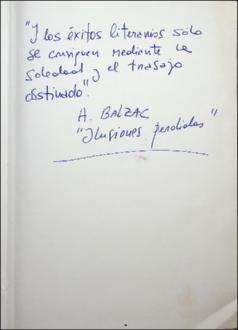 "Y los éxitos literarios solo
se consiguen mediente la
soledad y el trabajo
obstinado".
A. BALZAC
"Ilusiones perdidas"